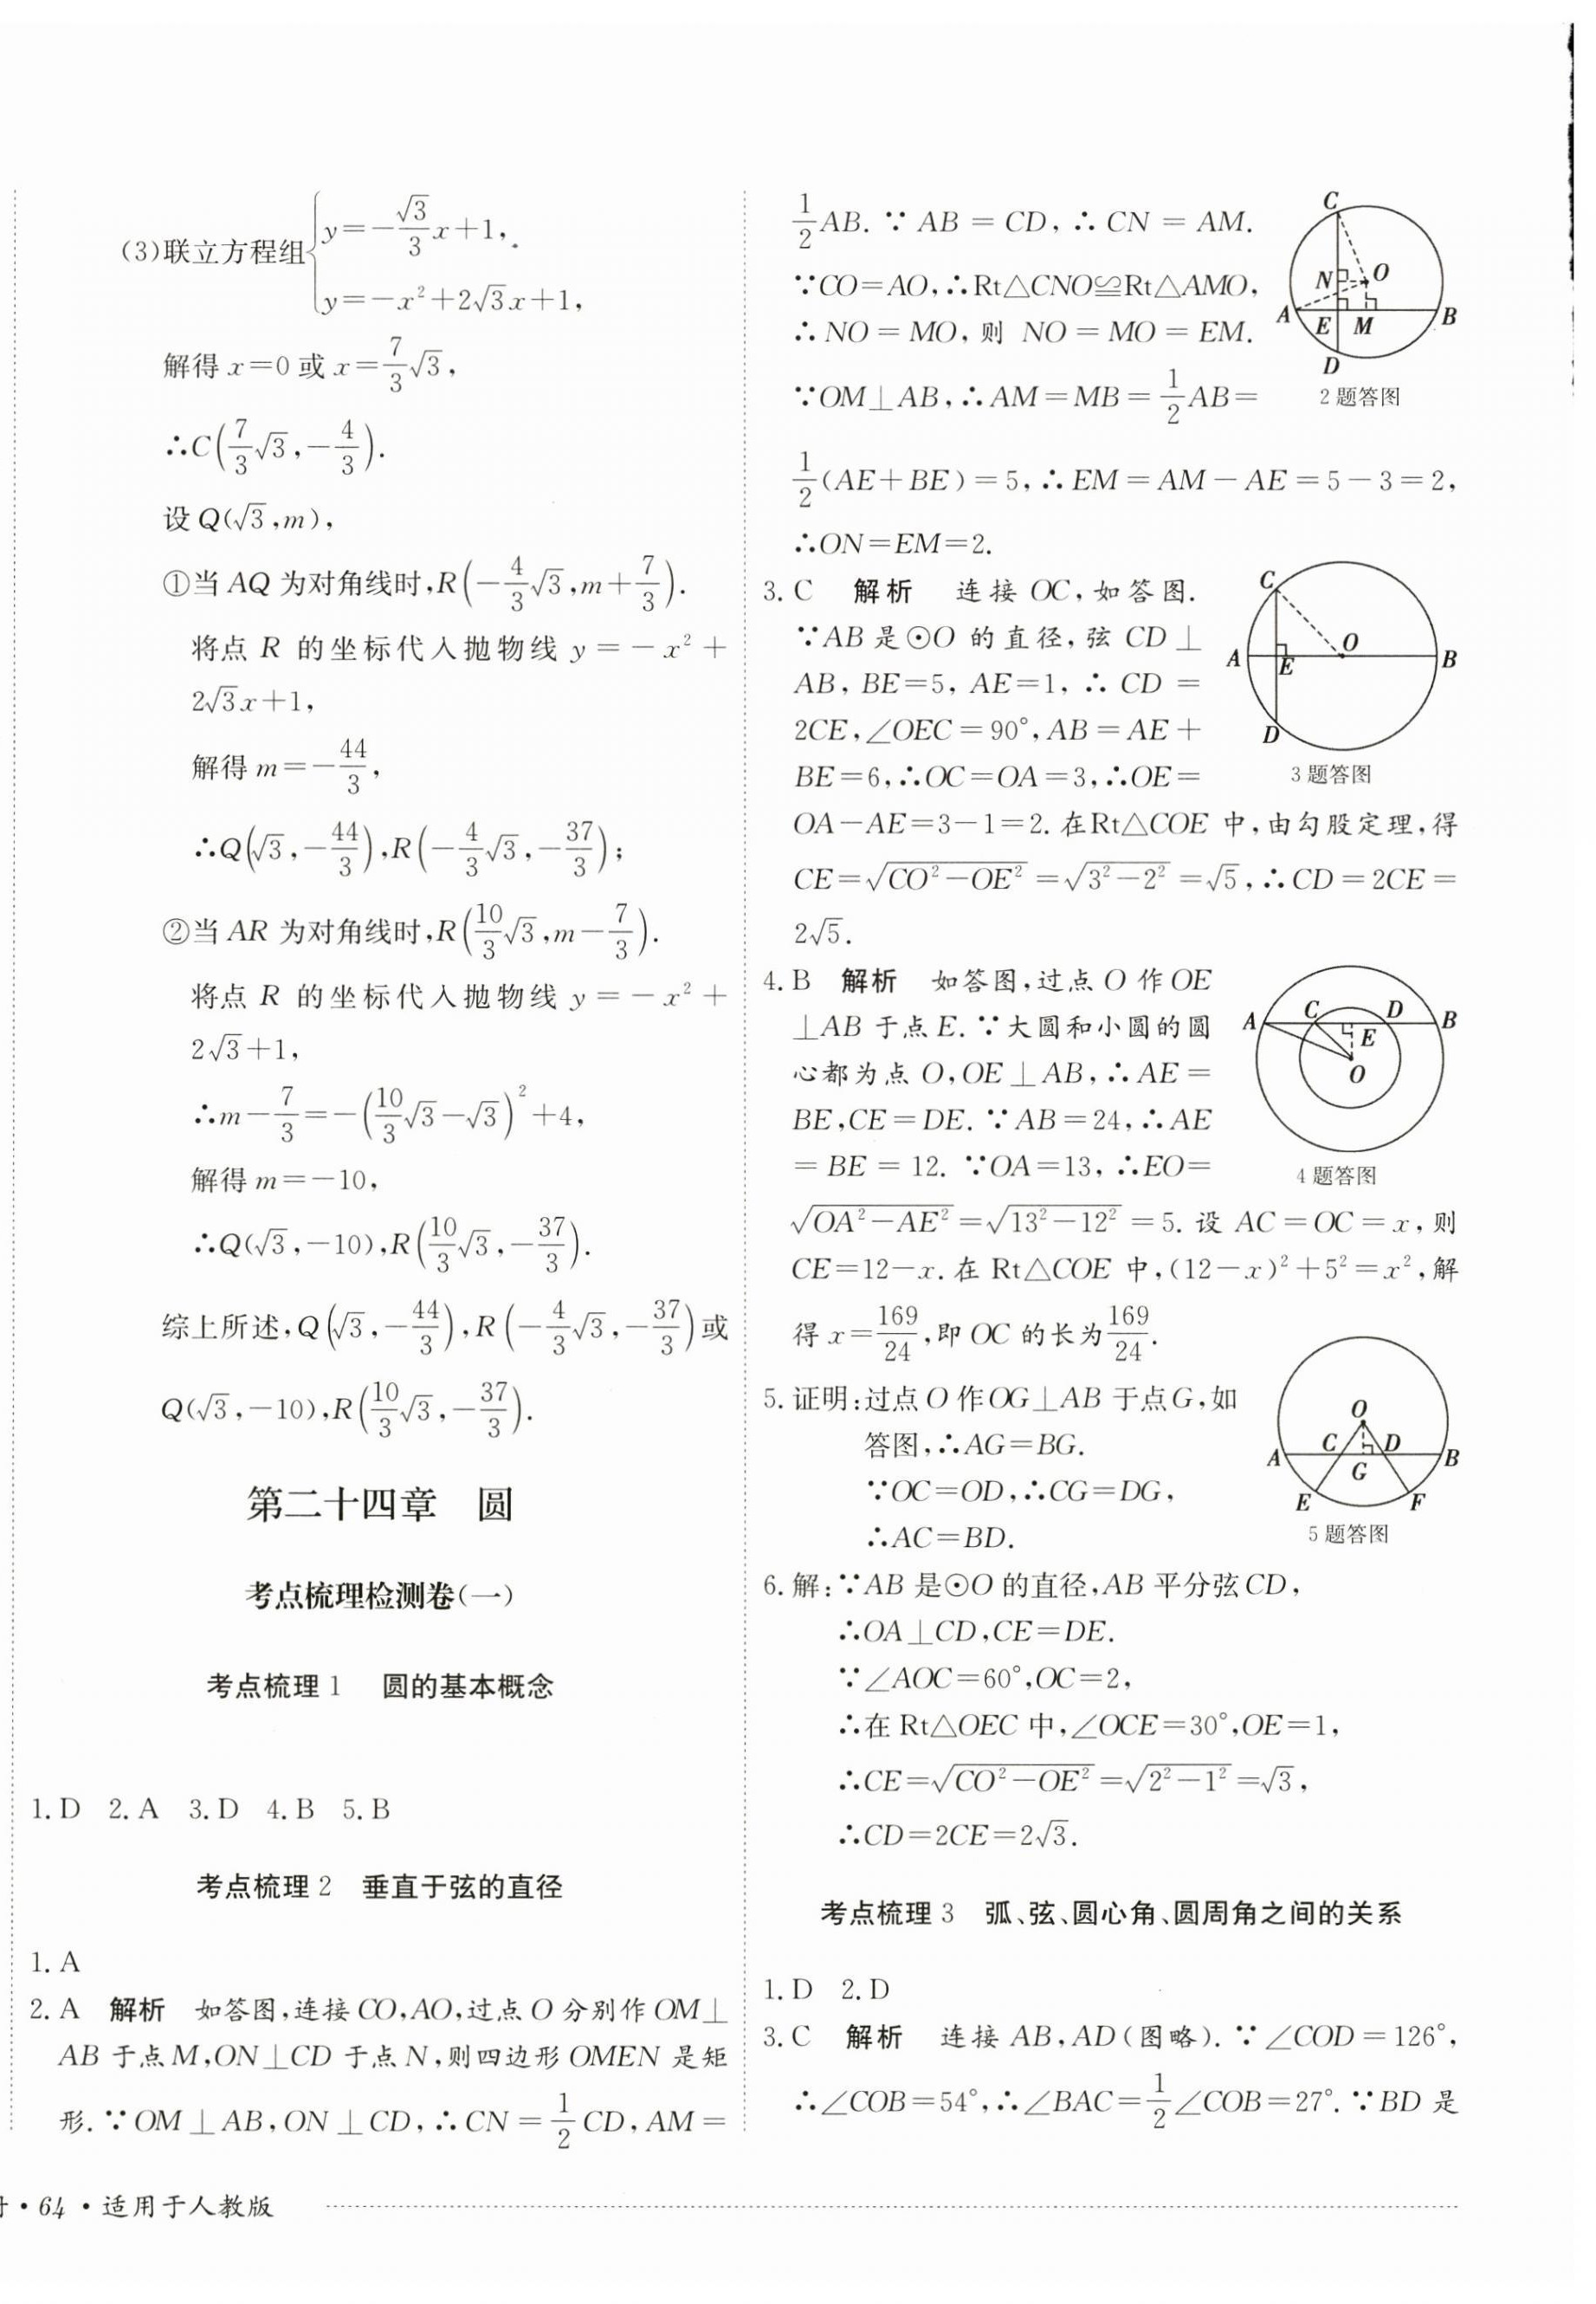 (3)联立方程组{y=-\frac{\sqrt{3}}{3}x+1,
y=-x²+2√3x+1,
解得 x=0 或 x=\frac{7}{3}√3,
∴C(\frac{7}{3}√3,-\frac{4}{3}).
设 Q(√3,m),
①当 AQ 为对角线时,R(-\frac{4}{3}√3,m+\frac{7}{3}).
将点 R 的坐标代入抛物线 y=-x²+
2√3x+1,
解得 m=-\frac{44}{3},
∴Q(√3,-\frac{44}{3}),R(-\frac{4}{3}√3,-\frac{37}{3});
②当 AR 为对角线时,R(\frac{10}{3}√3,m-\frac{7}{3}).
将点 R 的坐标代入抛物线 y=-x²+
2√3+1,
∴m-\frac{7}{3}=-(\frac{10}{3}√3-√3)²+4,
解得 m=-10,
∴Q(√3,-10),R(\frac{10}{3}√3,-\frac{37}{3}).
综上所述,Q(√3,-\frac{44}{3}),R(-\frac{4}{3}√3,-\frac{37}{3})或
Q(√3,-10),R(\frac{10}{3}√3,-\frac{37}{3}).
第二十四章 圆
考点梳理检测卷(一)
考点梳理 1 圆的基本概念
1. D 2. A 3. D 4. B 5. B
考点梳理 2 垂直于弦的直径
1. A
2. A 解析 如答图,连接 CO,AO,过点 O 分别作 OM⊥
AB 于点 M,ON⊥CD 于点 N,则四边形 OMEN 是矩
形. ∵OM⊥AB,ON⊥CD,∴CN=\frac{1}{2}CD,AM=
\frac{1}{2}AB. ∵AB=CD,∴CN=AM.
∵CO=AO,∴Rt△CNO≌Rt△AMO,
∴NO=MO,则 NO=MO=EM.
∵OM⊥AB,∴AM=MB=\frac{1}{2}AB=
\frac{1}{2}(AE+BE)=5,∴EM=AM-AE=5-3=2,
∴ON=EM=2.
C
N
O
A
E
M
B
D
2 题答图
3. C 解析 连接 OC,如答图.
∵AB 是⊙O 的直径,弦 CD⊥
AB,BE=5,AE=1,∴CD=
2CE,∠OEC=90°,AB=AE+
BE=6,∴OC=OA=3,∴OE=
OA-AE=3-1=2. 在Rt△COE 中,由勾股定理,得
CE=√(CO²-OE²)=√(3²-2²)=√5,∴CD=2CE=
2√5.
C
O
A
E
B
D
3 题答图
4. B 解析 如答图,过点 O 作 OE
⊥AB 于点 E. ∵大圆和小圆的圆
心都为点 O,OE⊥AB,∴AE=
BE,CE=DE. ∵AB=24,∴AE
=BE=12. ∵OA=13,∴EO=
√(OA²-AE²)=√(13²-12²)=5. 设 AC=OC=x,则
CE=12-x. 在 Rt△COE 中,(12-x)²+5²=x²,解
得 x=\frac{169}{24},即 OC 的长为\frac{169}{24}.
A
C
D
B
E
O
4 题答图
5. 证明:过点 O 作OG⊥AB 于点G,如
答图,∴AG=BG.
∵OC=OD,∴CG=DG,
∴AC=BD.
O
A
C
D
B
G
E
F
5 题答图
6. 解:∵AB 是⊙O 的直径,AB 平分弦CD,
∴OA⊥CD,CE=DE.
∵∠AOC=60°,OC=2,
∴在 Rt△OEC 中,∠OCE=30°,OE=1,
∴CE=√(CO²-OE²)=√(2²-1²)=√3,
∴CD=2CE=2√3.
考点梳理 3 弧、弦、圆心角、圆周角之间的关系
1. D 2. D
3. C 解析 连接 AB,AD(图略). ∵∠COD=126°,
∴∠COB=54°,∴∠BAC=\frac{1}{2}∠COB=27°. ∵BD 是
• 64 • 适用于人教版